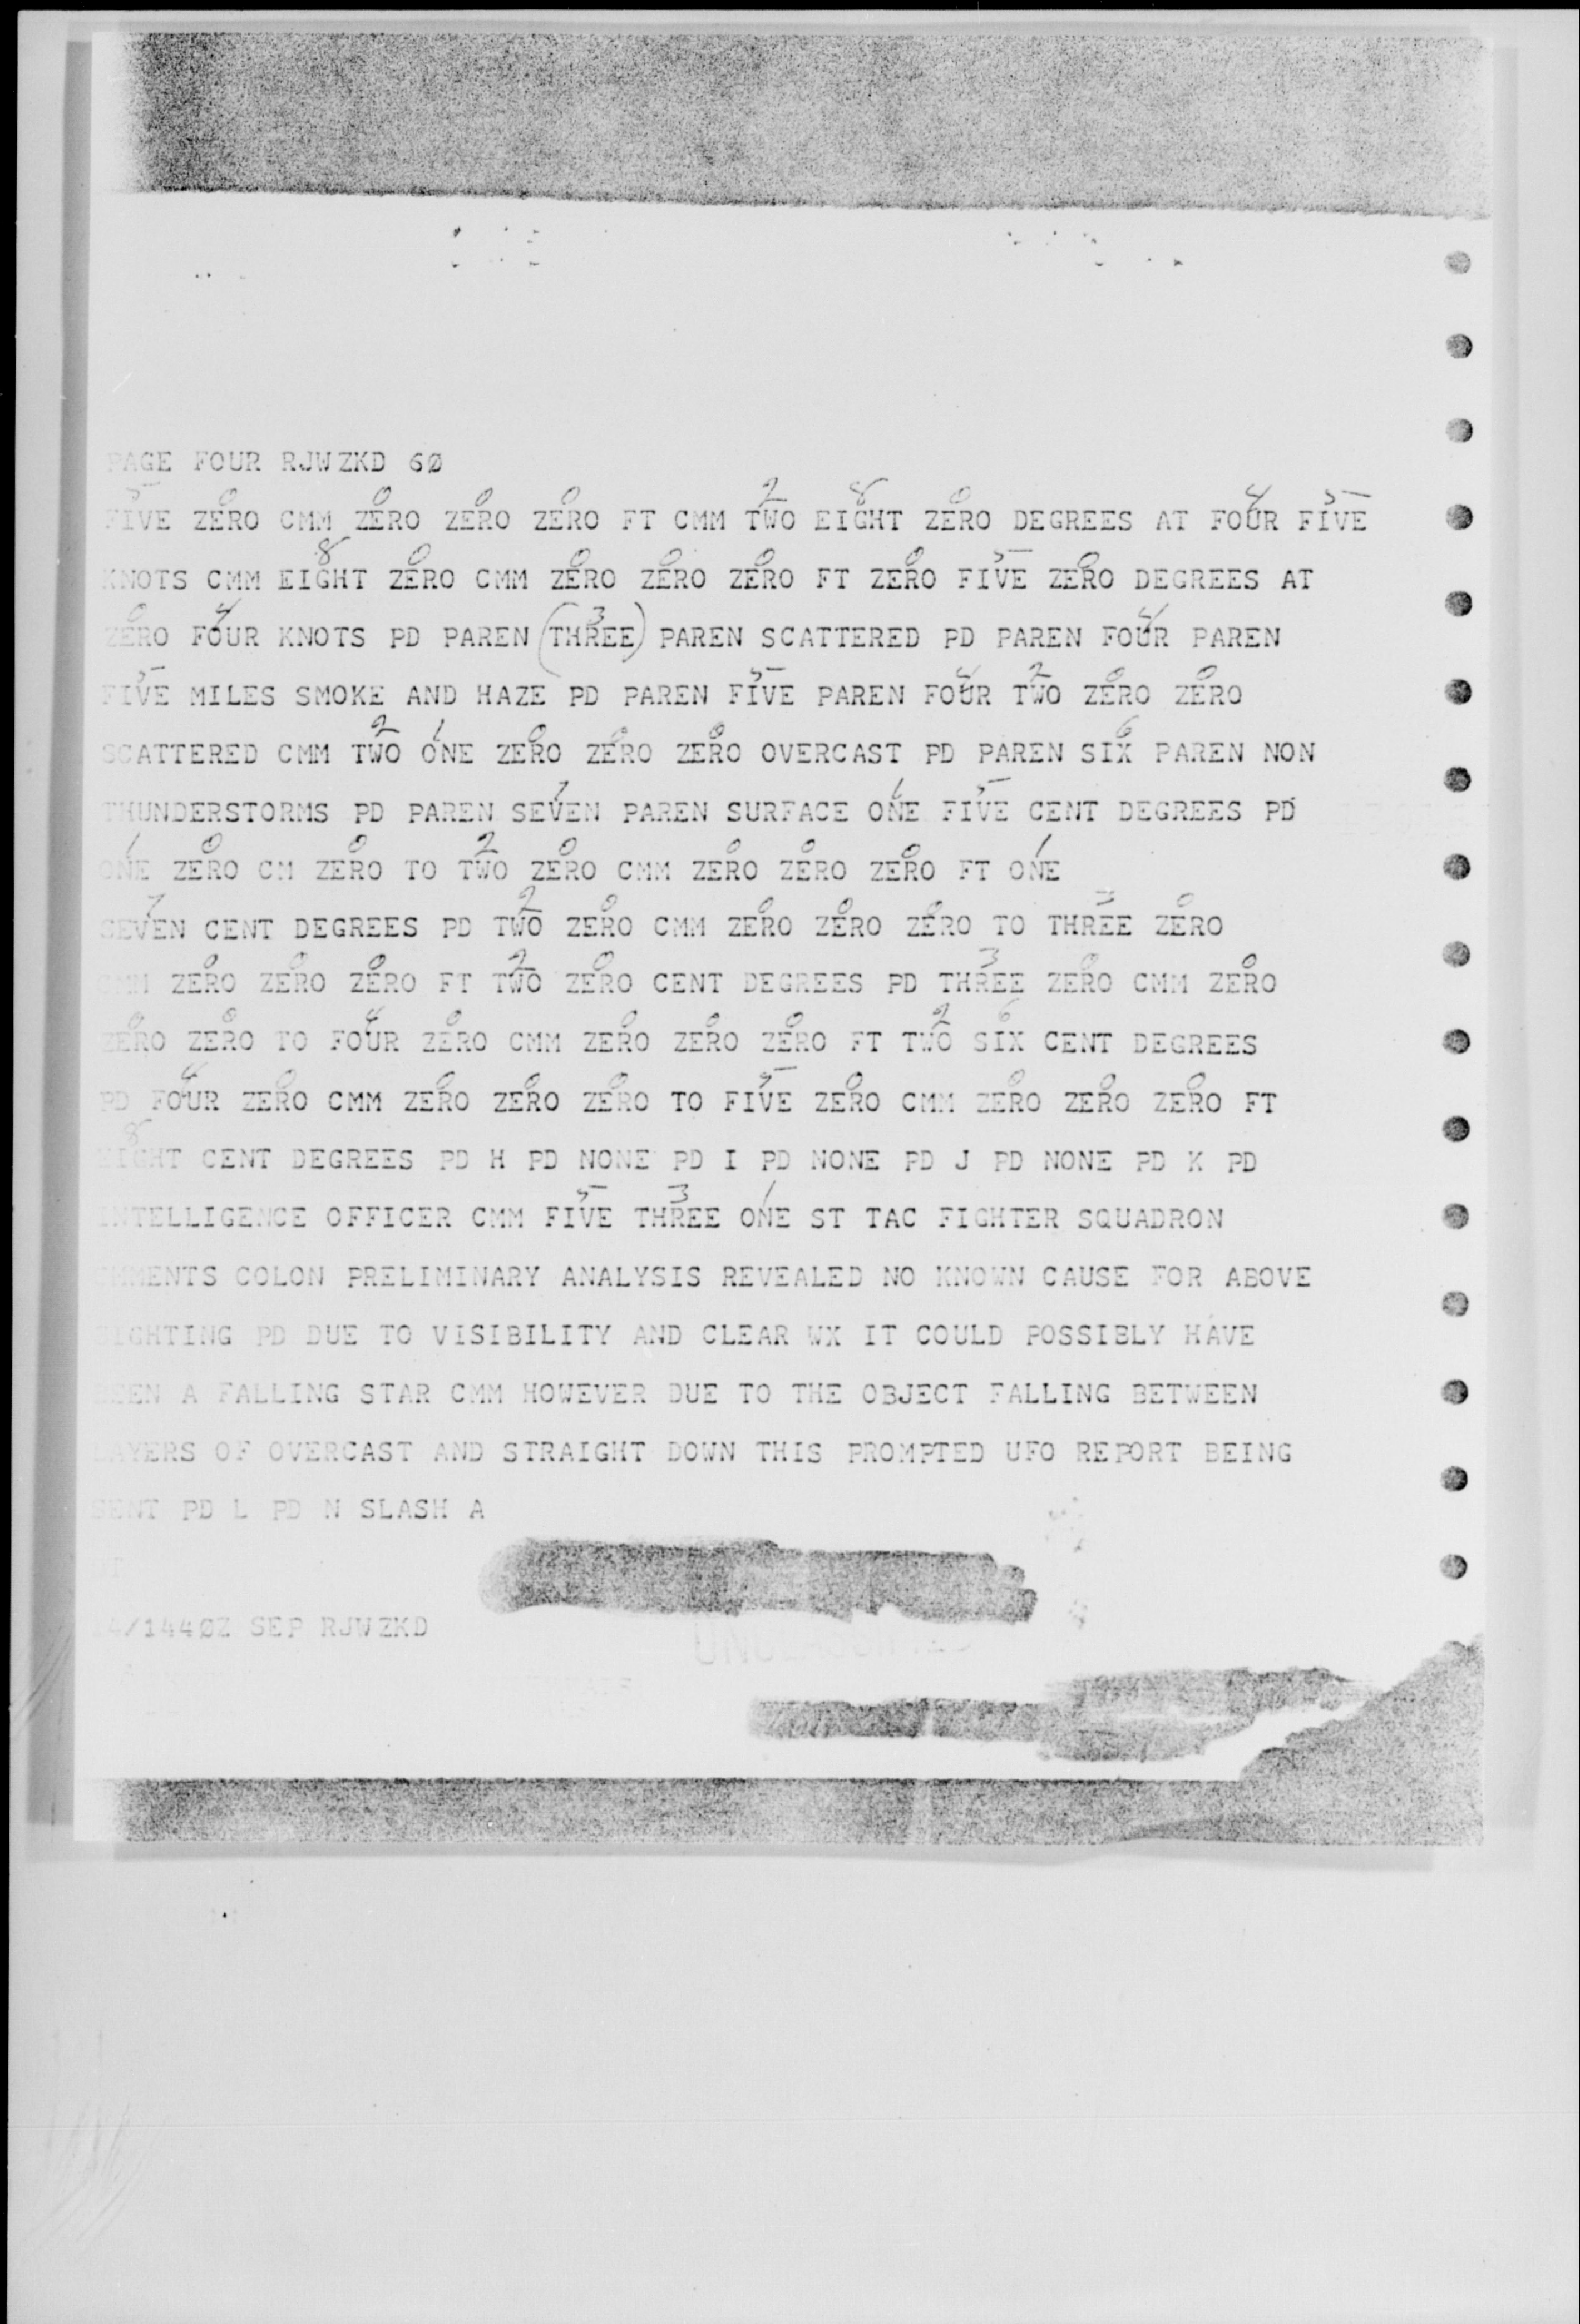 PAGE FOUR RJWZKD 6Ø
5 0 0 0 0 2 8 0 4 5
FIVE ZERO CMM ZERO ZERO ZERO FT CMM TWO EIGHT ZERO DEGREES AT FOUR FIVE
8 0 0 0 0 0 5 0
KNOTS CMM EIGHT ZERO CMM ZERO ZERO ZERO FT ZERO FIVE ZERO DEGREES AT
0 4 3 4
ZERO FOUR KNOTS PD PAREN (THREE) PAREN SCATTERED PD PAREN FOUR PAREN
5 5 4 2 0 0
FIVE MILES SMOKE AND HAZE PD PAREN FIVE PAREN FOUR TWO ZERO ZERO
2 1 0 0 0 6
SCATTERED CMM TWO ONE ZERO ZERO ZERO OVERCAST PD PAREN SIX PAREN NON
7 1 5
THUNDERSTORMS PD PAREN SEVEN PAREN SURFACE ONE FIVE CENT DEGREES PD
1 0 0 2 0 0 0 0 1
ONE ZERO CM ZERO TO TWO ZERO CMM ZERO ZERO ZERO FT ONE
7 2 0 0 0 0 3 0
SEVEN CENT DEGREES PD TWO ZERO CMM ZERO ZERO ZERO TO THREE ZERO
0 0 0 2 0 3 0 0
CMM ZERO ZERO ZERO FT TWO ZERO CENT DEGREES PD THREE ZERO CMM ZERO
0 0 4 0 0 0 0 2 6
ZERO ZERO TO FOUR ZERO CMM ZERO ZERO ZERO FT TWO SIX CENT DEGREES
4 0 0 0 0 5 0 0 0 0
PD FOUR ZERO CMM ZERO ZERO ZERO TO FIVE ZERO CMM ZERO ZERO ZERO FT
8
EIGHT CENT DEGREES PD H PD NONE PD I PD NONE PD J PD NONE PD K PD
5 3 1
INTELLIGENCE OFFICER CMM FIVE THREE ONE ST TAC FIGHTER SQUADRON
MMENTS COLON PRELIMINARY ANALYSIS REVEALED NO KNOWN CAUSE FOR ABOVE
SIGHTING PD DUE TO VISIBILITY AND CLEAR WX IT COULD POSSIBLY HAVE
BEEN A FALLING STAR CMM HOWEVER DUE TO THE OBJECT FALLING BETWEEN
LAYERS OF OVERCAST AND STRAIGHT DOWN THIS PROMPTED UFO REPORT BEING
SENT PD L PD N SLASH A
14/144ØZ SEP RJWZKD